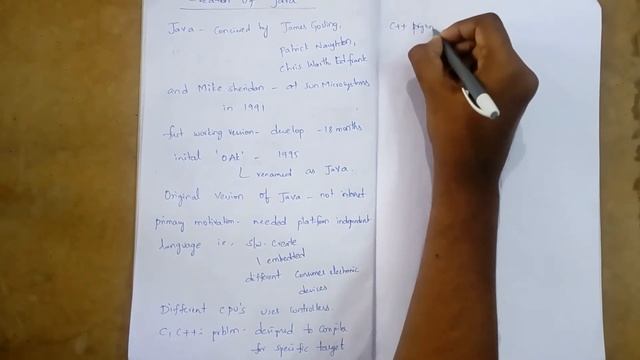 Creation of Java
Java - Concived by James Gosling,
Patrick Naughton,
Chris Warth Ed frank
and Mike sheridan - at Sun Microsystems
in 1991
first working version - develop - 18 months
initial 'OAK' - 1995
renamed as Java.
Original version of Java - not internet
primary motivation - needed platform independent
language i.e., s/w. create
embedded
different Consumer electronic
devices
Different CPU's uses controllers.
C, C++: prblm - designed to compile
for specific target
C++ prgm